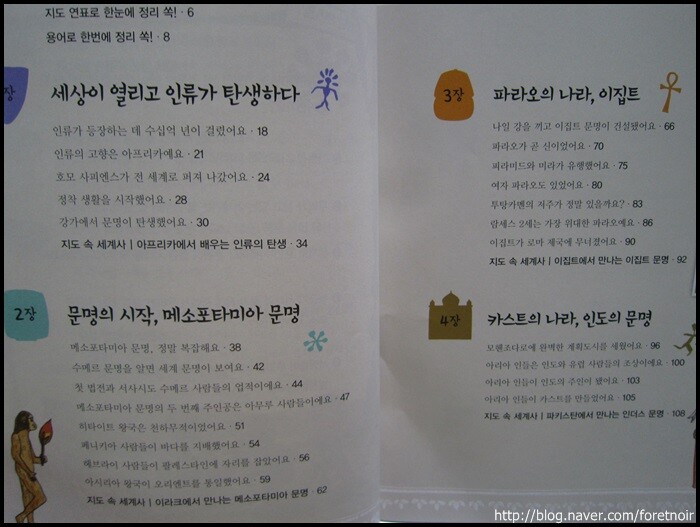 지도 연표로 한눈에 정리 쏙! · 6
용어로 한번에 정리 쏙! · 8
장
세상이 열리고 인류가 탄생하다
인류가 등장하는 데 수십억 년이 걸렸어요 · 18
인류의 고향은 아프리카예요 · 21
호모 사피엔스가 전 세계로 퍼져 나갔어요 · 24
정착 생활을 시작했어요 · 28
강가에서 문명이 탄생했어요 · 30
지도 속 세계사 | 아프리카에서 배우는 인류의 탄생 · 34
2장
문명의 시작, 메소포타미아 문명
메소포타미아 문명, 정말 복잡해요 · 38
수메르 문명을 알면 세계 문명이 보여요 · 42
첫 법전과 서사시도 수메르 사람들의 업적이에요 · 44
메소포타미아 문명의 두 번째 주인공은 아무루 사람들이에요 · 47
히타이트 왕국은 천하무적이었어요 · 51
페니키아 사람들이 바다를 지배했어요 · 54
헤브라이 사람들이 팔레스타인에 자리를 잡았어요 · 56
아시리아 왕국이 오리엔트를 통일했어요 · 59
지도 속 세계사 | 이라크에서 만나는 메소포타미아 문명 · 62
3장
파라오의 나라, 이집트
나일 강을 끼고 이집트 문명이 건설됐어요 · 66
파라오가 곧 신이었어요 · 70
피라미드와 미라가 유행했어요 · 75
여자 파라오도 있었어요 · 80
투탕카멘의 저주가 정말 있을까요? · 83
람세스 2세는 가장 위대한 파라오예요 · 86
이집트가 로마 제국에 무너졌어요 · 90
지도 속 세계사 | 이집트에서 만나는 이집트 문명 · 92
4장
카스트의 나라, 인도의 문명
모헨조다로에 완벽한 계획도시를 세웠어요 · 96
아리아 인들은 인도와 유럽 사람들의 조상이에요 · 100
아리아 인들이 인도의 주인이 됐어요 · 103
아리아 인들이 카스트를 만들었어요 · 105
지도 속 세계사 | 파키스탄에서 만나는 인더스 문명 · 108
http://blog.naver.com/foretnoir